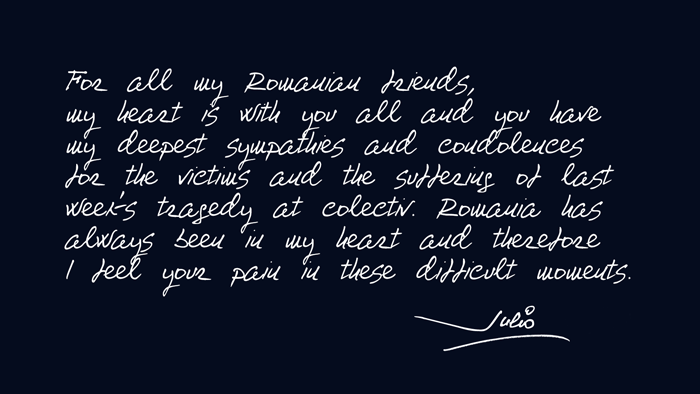 For all my Romanian friends,
my heart is with you all and you have
my deepest sympathies and condolences
for the victims and the suffering of last
week's tragedy at colectiv. Romania has
always been in my heart and therefore
I feel your pain in these difficult moments.
Julio